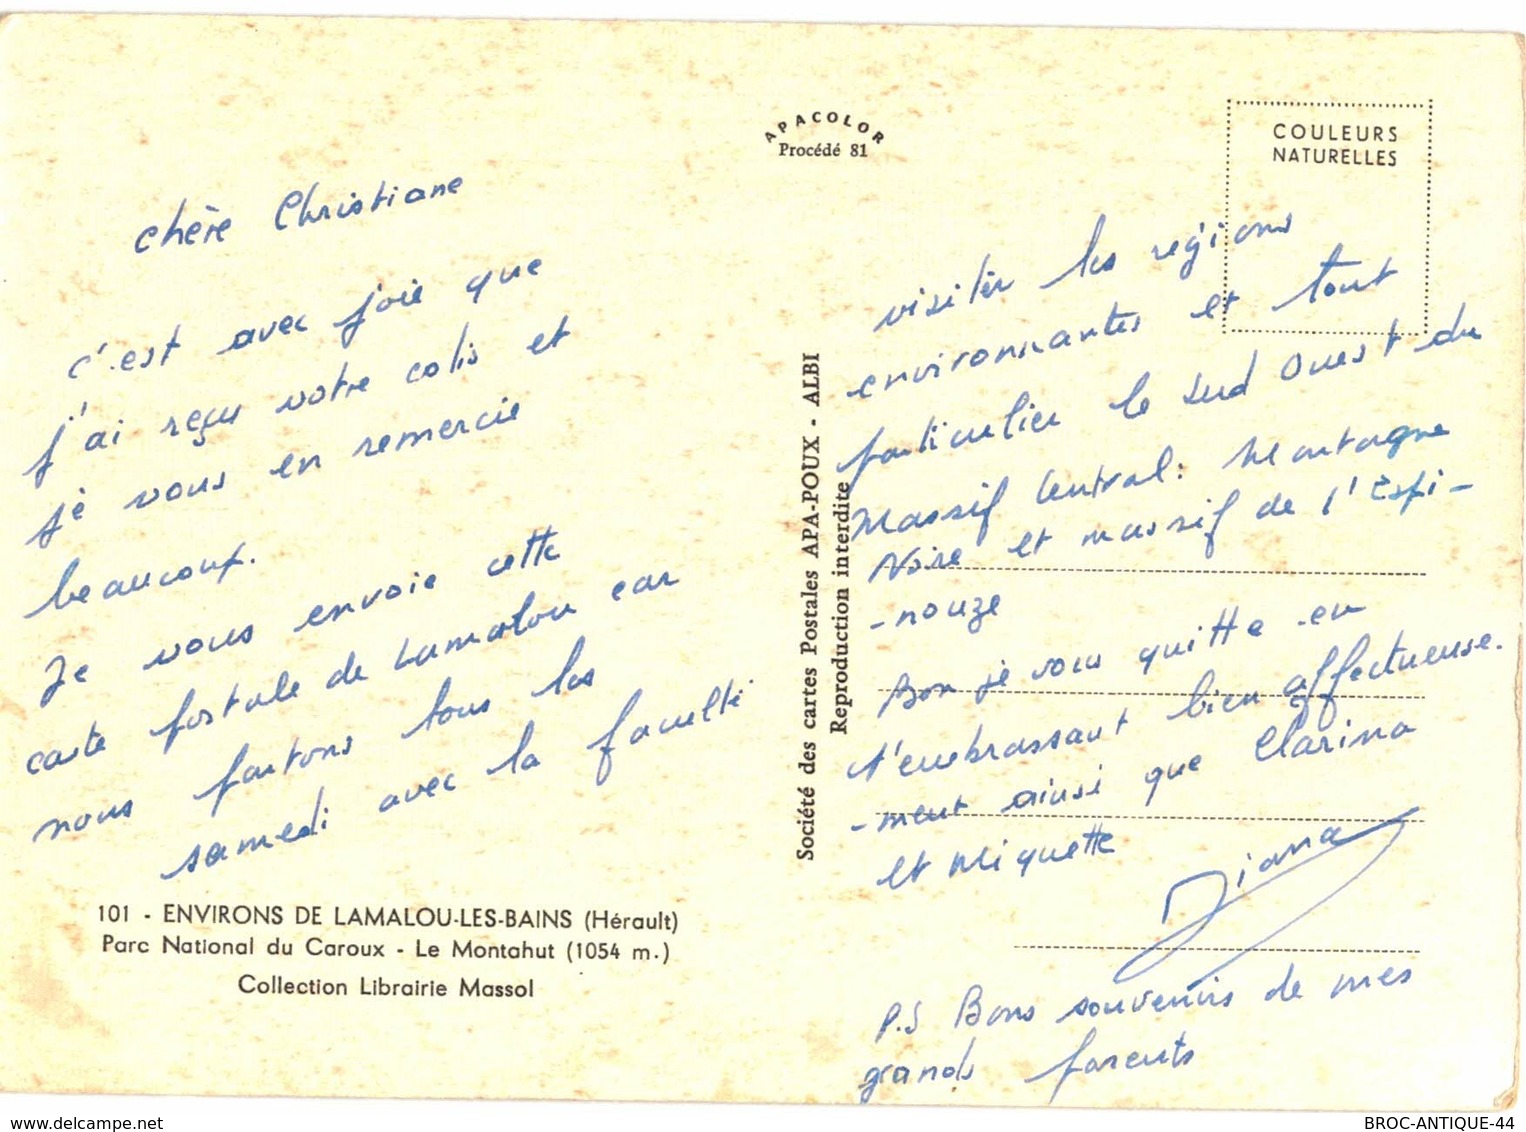 APACOLOR
Procédé 81
COULEURS
NATURELLES
chère Christiane
c'est avec joie que
j'ai reçu votre colis et
je vous en remercie
beaucoup.
Je vous envoie cette
carte postale de Lamalou car
nous partons tous les
samedi avec la faculté
101 - ENVIRONS DE LAMALOU-LES-BAINS (Hérault)
Parc National du Caroux - Le Montahut (1054 m.)
Collection Librairie Massol
Société des cartes Postales APA-POUX - ALBI
Reproduction interdite
visiter les régions
environnantes et tout
particulier le Sud Ouest du
Massif Central : Montagne
Noire et massif de l'Espi-
-nouze
Bon je vous quitte en
t'embrassant bien affectueuse.
-ment ainsi que Clarina
et Miquette
Diana
P.S Bons souvenirs de mes
grands parents
delcampe.net
BROC-ANTIQUE-44